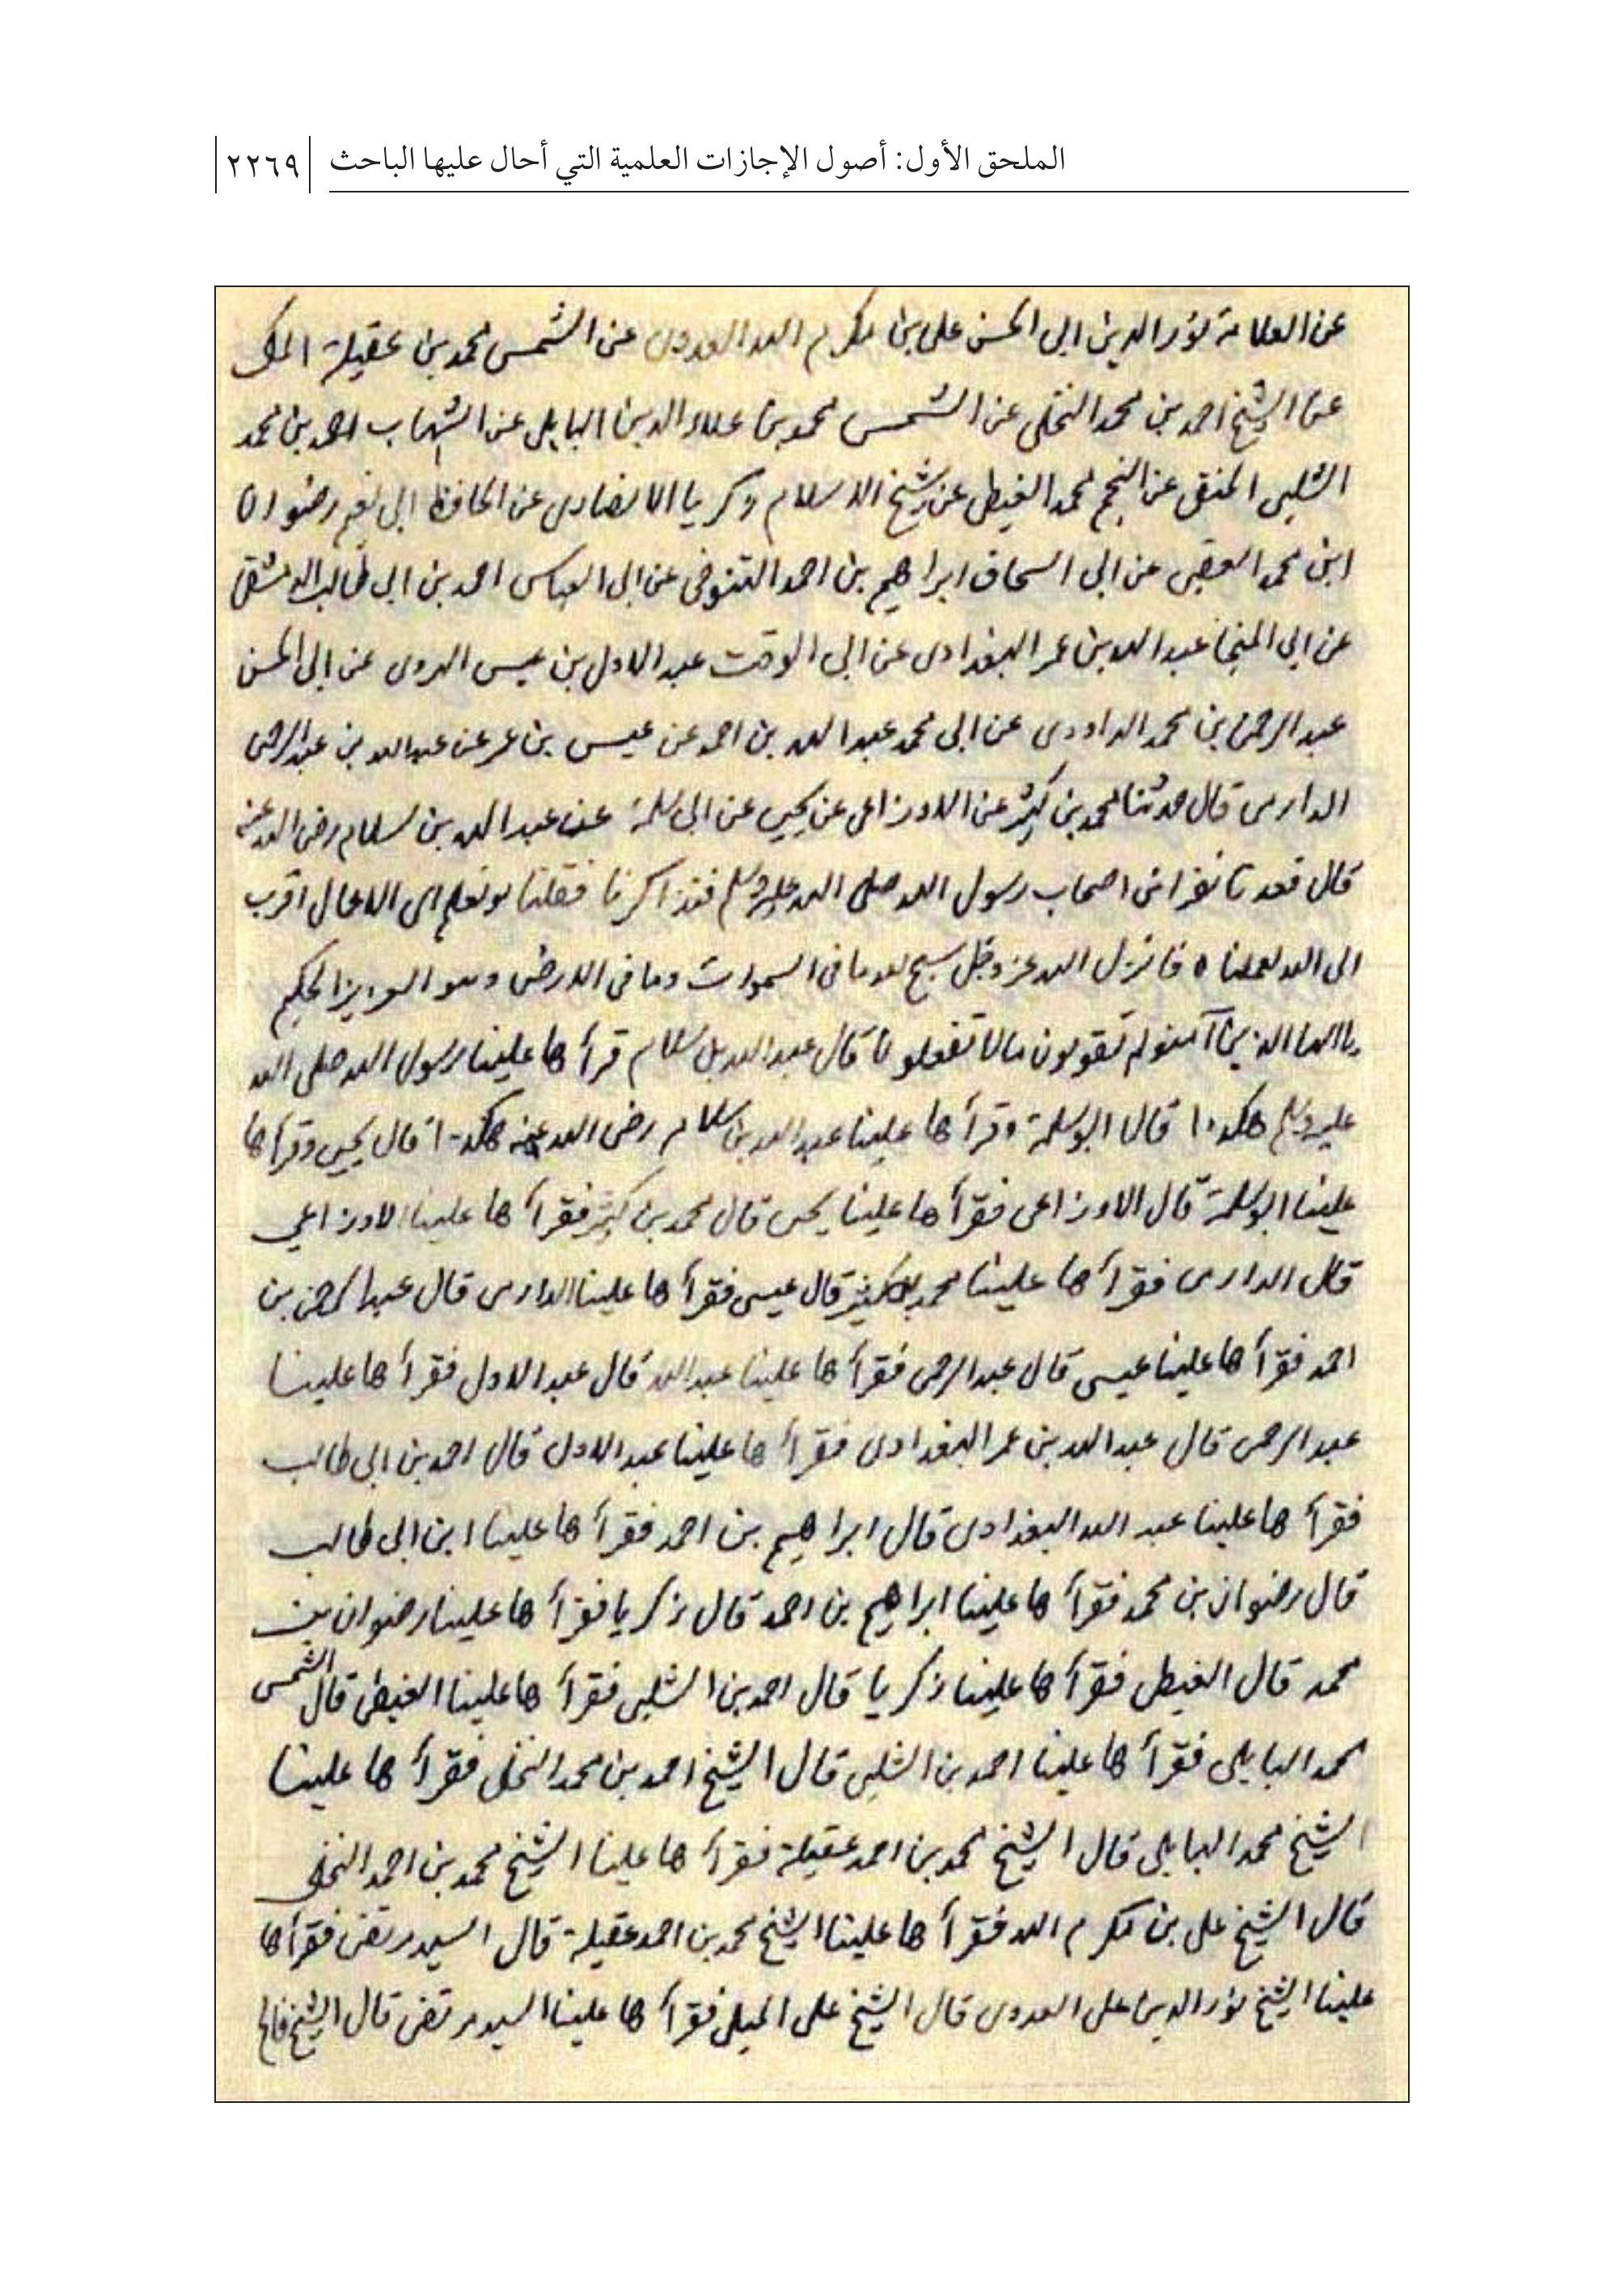 الملحق الأول: أصول الإجازات العلمية التي أحال عليها الباحث ٢٢٦٩
عن العلامة نور الدين ابى الحسن على بن مكرم الله العدوى عن الشمس محمد بن عقيلة المكى
عن الشيخ احمد بن محمد النخلى عن الشمس محمد بن علاء الدين البابلى عن الشهاب احمد بن محمد
الشلبى الحنفى عن النجم محمد الغيطى عن شيخ الاسلام زكريا الانصارى عن الحافظ ابى نعيم رضوان
ابن محمد العقبى عن ابى اسحاق ابراهيم بن احمد التنوخى عن ابى العباس احمد بن ابى طالب الدمشقى
عن ابى المنجا عبد الله بن عمر البغدادى عن ابى الوقت عبد الاول بن عيسى الهروى عن ابى الحسن
عبد الرحمن بن محمد الداودى عن ابى محمد عبد الله بن احمد عن عيسى بن عمر عن عبد الله بن عبد الرحمن
الدارمى قال حدثنا محمد بن كثير عن الاوزاعى عن يحيى عن ابى سلمة عن عبد الله بن سلام رضى الله عنه
قال قعدنا نفر من اصحاب رسول الله صلى الله عليه وسلم فتذاكرنا فقلنا لو نعلم اى الاعمال اقرب
الى الله لعملنا ه فانزل الله عز وجل سبح لله ما فى السموات وما فى الارض وهو العزيز الحكيم
يا ايها الذين آمنوا لم تقولون مالا تفعلون قال عبد الله بن سلام قرأ ها علينا رسول الله صلى الله
عليه وسلم هكذا قال ابو سلمة وقرأ ها علينا عبد الله بن سلام رضى الله عنه هكذا قال يحيى وقرأ ها
علينا ابو سلمة قال الاوزاعى فقرأ ها علينا يحيى قال محمد بن كثير فقرأ ها علينا الاوزاعي
قال الدارمى فقرأ ها علينا محمد بن كثير قال عيسى فقرأ ها علينا الدارمى قال عبد الرحمن بن
احمد فقرأ ها علينا عيسى قال عبد الرحمن فقرأ ها علينا عبد الله قال عبد الاول فقرأ ها علينا
عبد الرحمن قال عبد الله بن عمر البغدادى فقرأ ها علينا عبد الاول قال احمد بن ابى طالب
فقرأ ها علينا عبد الله البغدادى قال ابراهيم بن احمد فقرأ ها علينا ابن ابى طالب
قال رضوان بن محمد فقرأ ها علينا ابراهيم بن احمد قال زكريا فقرأ ها علينا رضوان بن
محمد قال الغيطى فقرأ ها علينا زكريا قال احمد بن الشلبى فقرأ ها علينا الغيطى قال الشمس
محمد البابلى فقرأ ها علينا احمد بن الشلبى قال الشيخ احمد بن محمد النخلى فقرأ ها علينا
الشيخ محمد البابلى قال الشيخ محمد بن احمد عقيلة فقرأ ها علينا الشيخ محمد بن احمد النخلى
قال الشيخ على بن مكرم الله فقرأ ها علينا الشيخ محمد بن احمد عقيلة قال السيد مرتضى فقرأ ها
علينا الشيخ نور الدين على العدوى قال الشيخ على الميلى فقرأ ها علينا السيد مرتضى قال الشيخ فالح